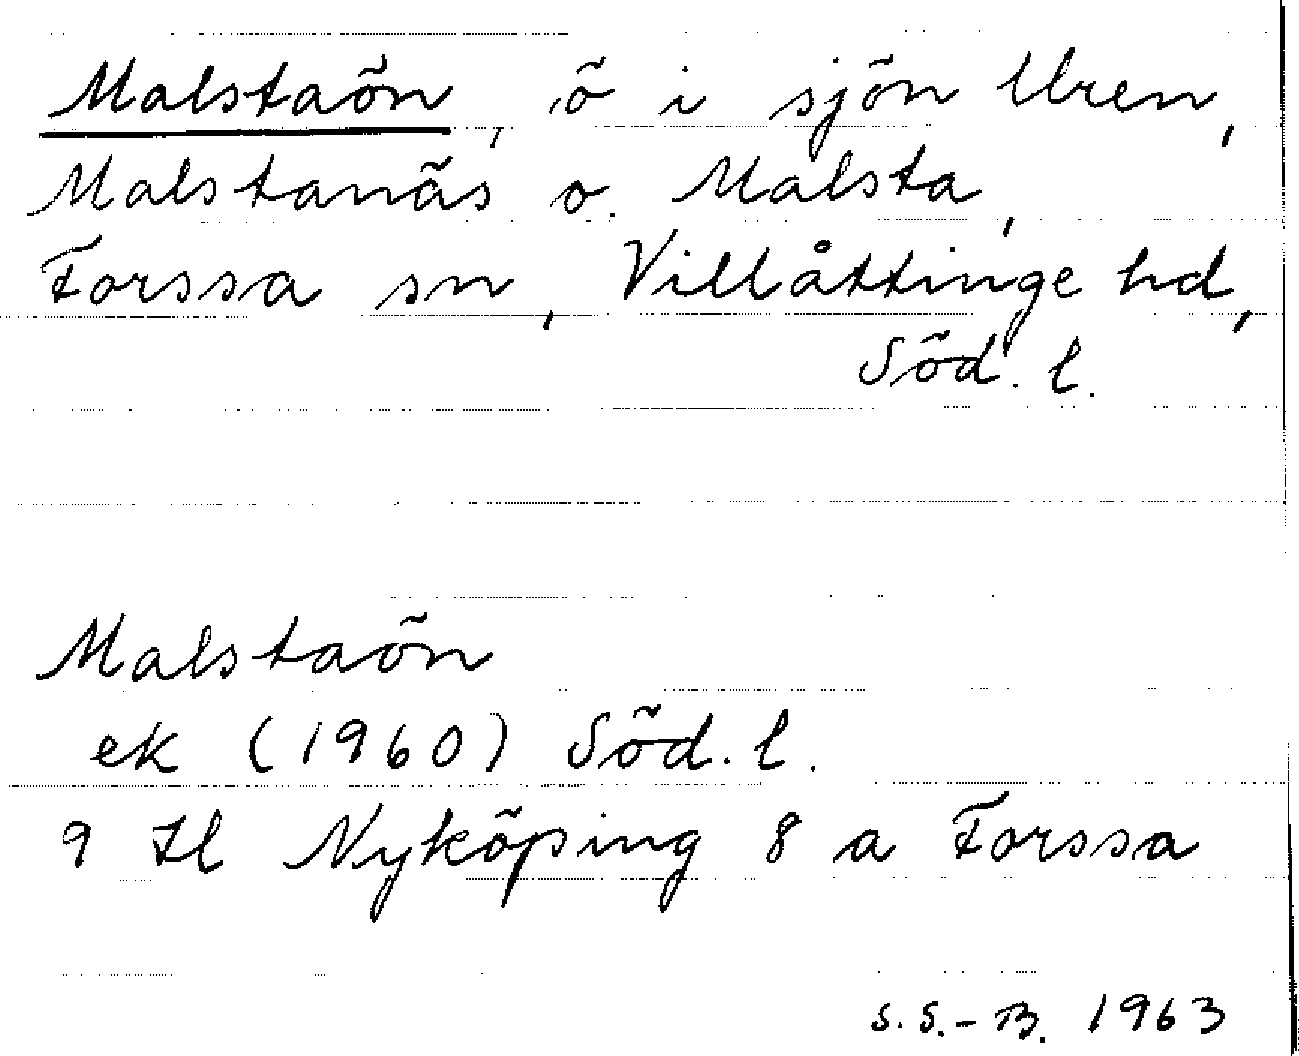 Malstaön, ö i sjön Uren,
Malstanäs o. Malsta,
Forssa sn, Villåttinge hd,
Söd. l.
Malstaön
ek (1960) Söd. l.
9 H l Nyköping 8 a Forssa
S.S.-B. 1963